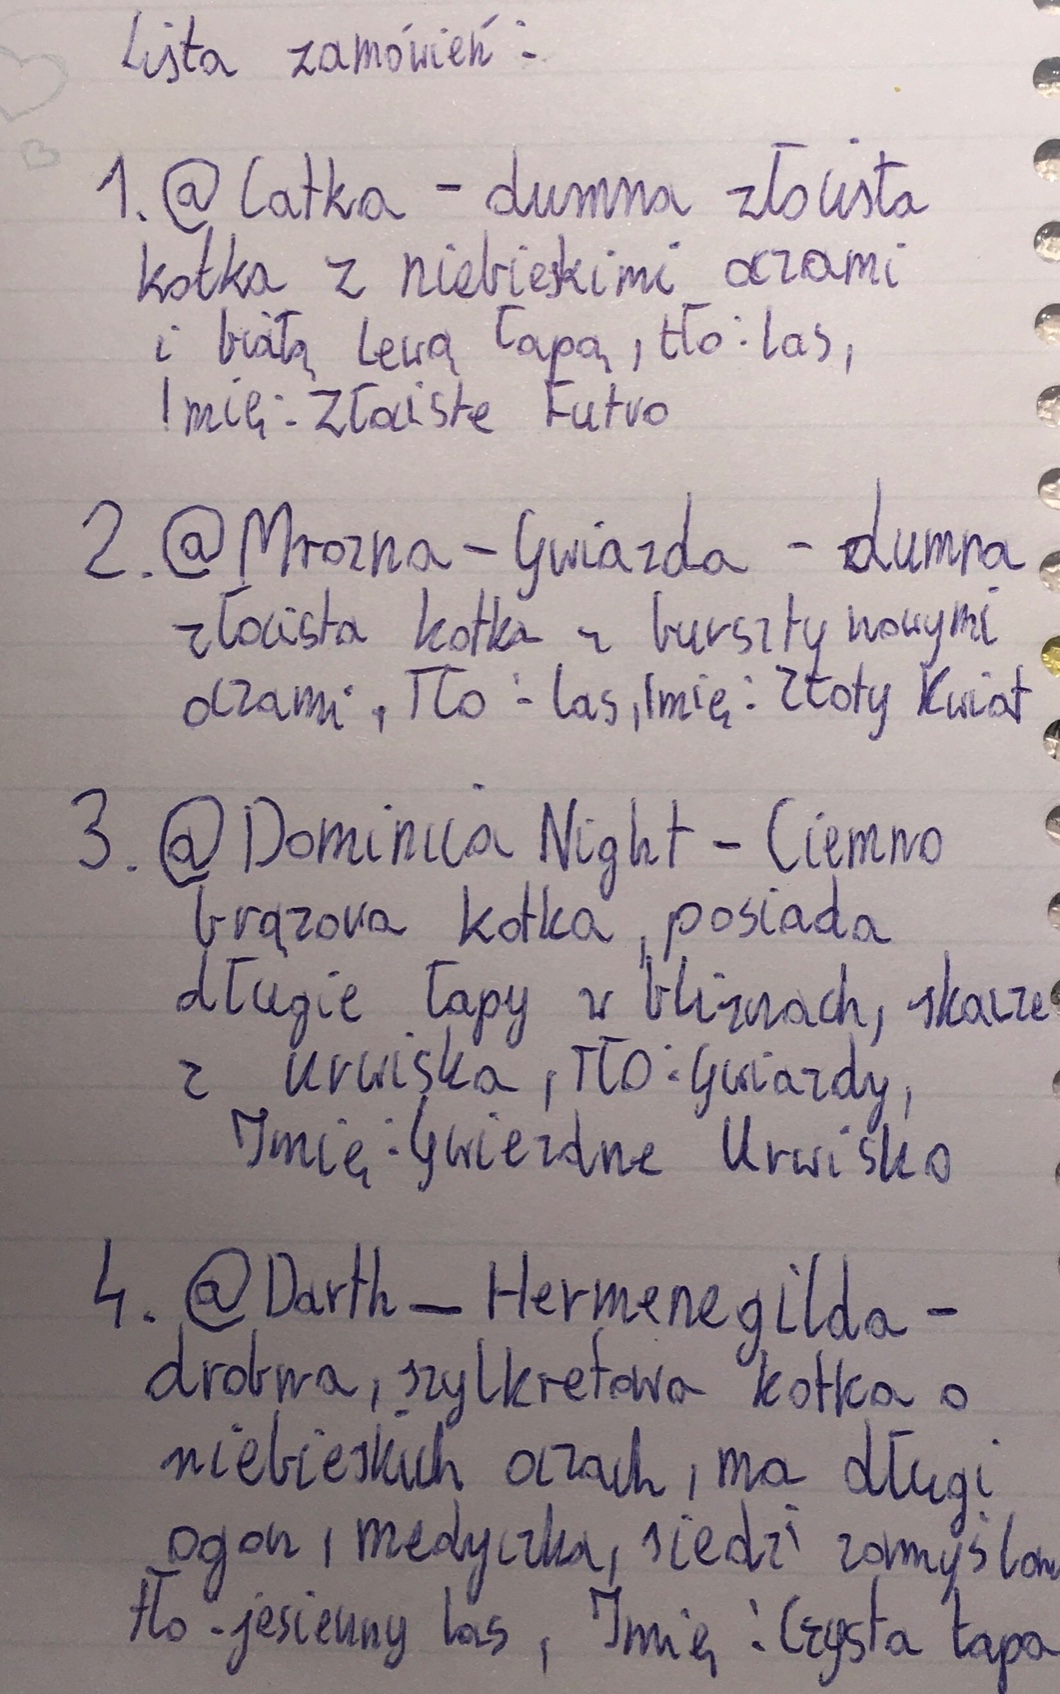 Lista zamówień:
1. @Catka - dumna złocista
kotka z niebieskimi oczami
i białą lewą łapą, tło: las,
Imię: Złociste Futro
2. @Mrozna-Gwiazda - dumna
złocista kotka z bursztynowymi
oczami, Tło: las, Imię: Złoty Kwiat
3. @Dominicia Night - Ciemno
brązowa kotka, posiada
długie łapy w bliznach, skacze
z urwiska, Tło: Gwiazdy,
Imię: Gwiezdne Urwisko
4. @Darth_Hermenegilda -
drobna, szylkretowa kotka o
niebieskich oczach, ma długi
ogon, medyczka, siedzi
tło - jesienny las, Imię: Czysta Łapa